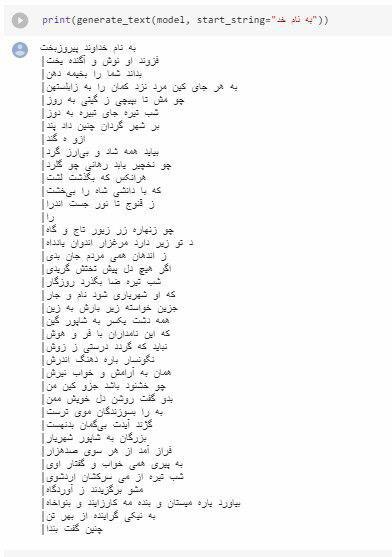 print(generate_text(model, start_string="به نام خد"))
به نام خداوند پیروزبخت
فزوند او نوش و آگنده یخت|
بداند شما را بخیمه دهن|
به هر جای کین مرد نزد کمان را به زابلستهن|
چو مش تا بپیچی ز گیتی به روز|
شب تیره جای تبیره به دوز|
بر شهر گردان چنین داد پند|
ازو ه گند|
بیاید همه شاد و بی‌ارز گرد|
چو نخچیر یابد رهانی چو گلرد|
هرانکس که بگذشت لشت|
که با دانشی شاه را بی‌خشت|
ز قنوج تا نور جست اندرا|
را|
چو زنهاره زر زیور تاج و گاه|
د تو زیر دارد مرغزار اندوان یانداه|
ز اندهان همی مردم جان بدی|
اگر هیچ دل پیش تختش گریدی|
شب تیره ضا بگذرد روزگار|
که او شهریاری شود نام و جار|
جزین خواسته زیر بارش به زین|
همه دشت یکسر به شاپور گین|
که این نامداران با فر و هوش|
نباید که گردد درستی ز زوش|
نگونسار باره دهنگ اندرش|
همان به آرامش و خواب نیزش|
چو خشنود باشد جزو کین من|
بدو گفت روشن دل خویش ممن|
به را بسوزندگان موی ترست|
گزند آیدت بی‌گمان بدنهست|
بزرگان به شاپور شهریار|
فراز آمد از هر سوی صدهزار|
به پیری همی خواب و گفتار اوی|
شب تیره از می سرکشان اردشوی|
مشو برگزیدند ز آوردگاه|
بیاورد یاره میستان و بنده مه کارزایند و بنواخاه|
به نیکی گراینده از بهر تن|
چنین گفت بندا|